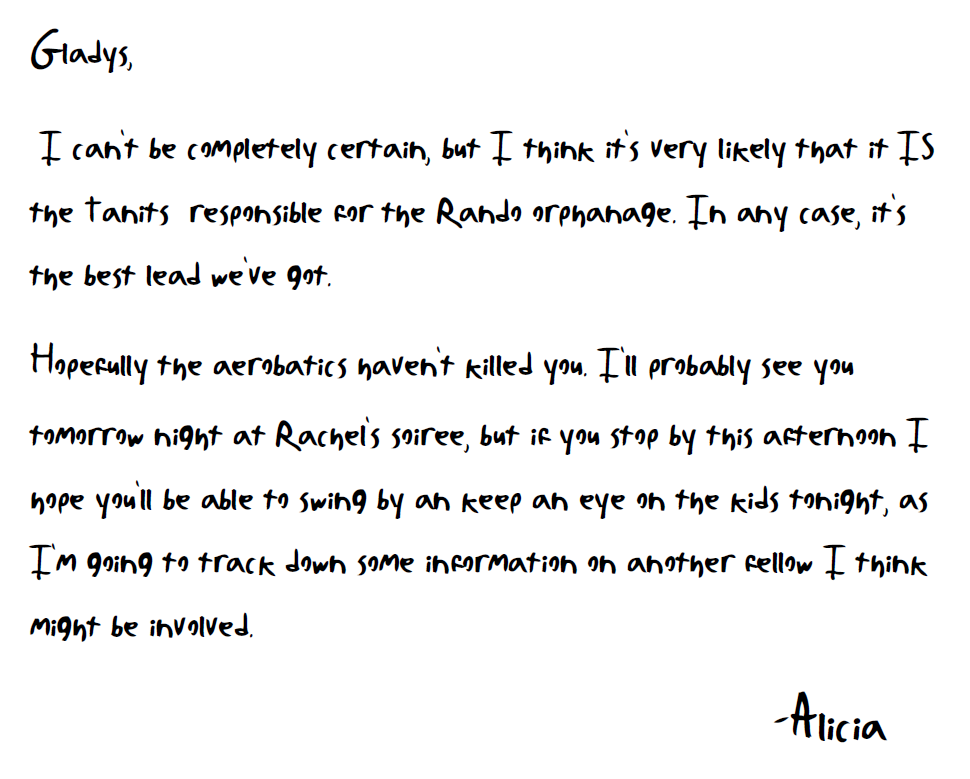 Gladys,
I can't be completely certain, but I think it's very likely that it IS
the Tanits responsible for the Rando orphanage. In any case, it's
the best lead we've got.
Hopefully the aerobatics haven't killed you. I'll probably see you
tomorrow night at Rachel's soiree, but if you stop by this afternoon I
hope you'll be able to swing by an keep an eye on the kids tonight, as
I'm going to track down some information on another fellow I think
might be involved.
-Alicia